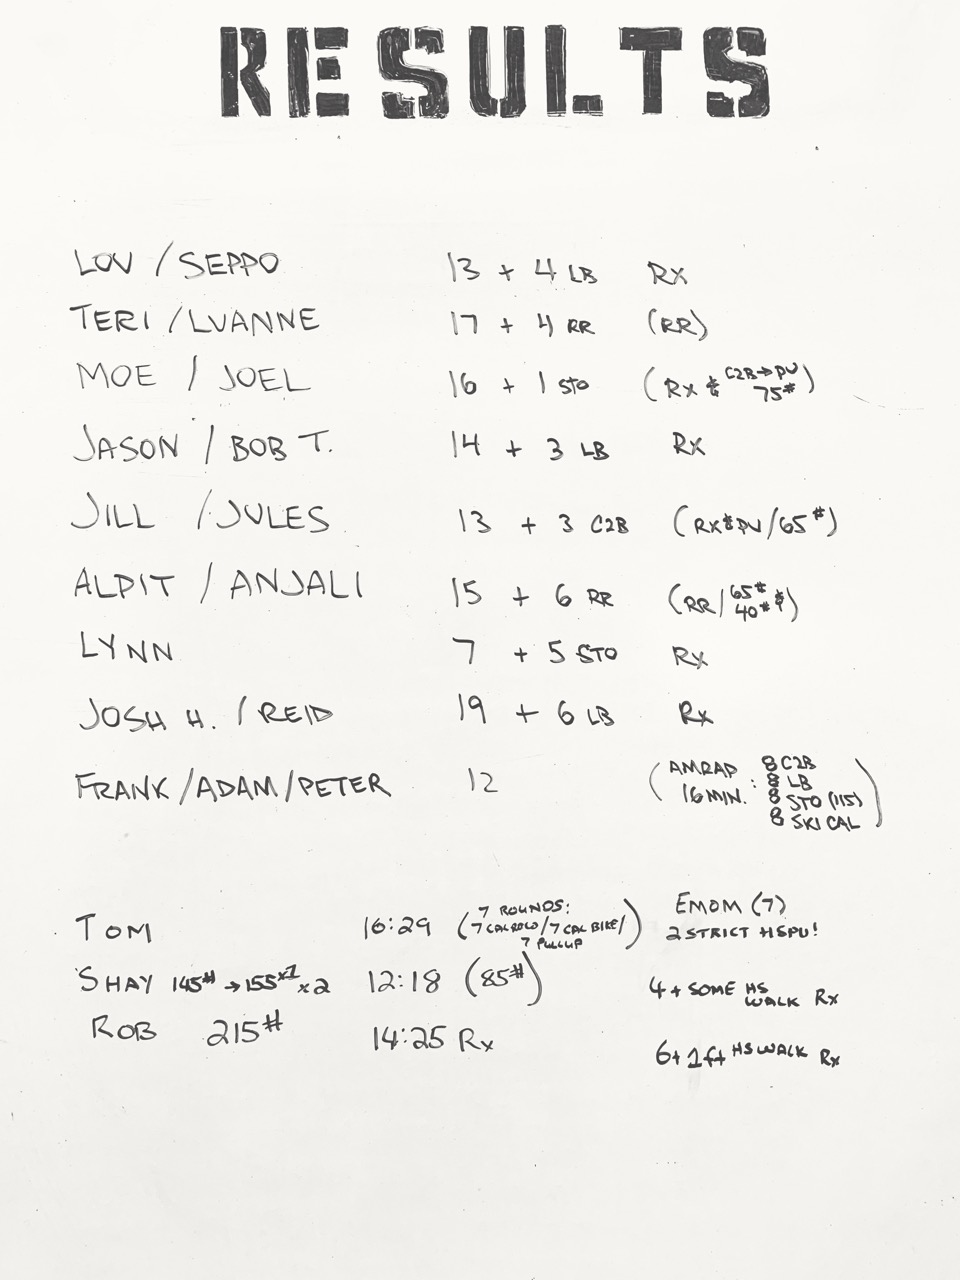 RESULTS
LOU / SEPPO 13 + 4 LB Rx
TERI / LUANNE 17 + 4 RR (RR)
MOE / JOEL 16 + 1 STO (Rx & C2B→PU 75#)
JASON / BOB T. 14 + 3 LB Rx
JILL / JULES 13 + 3 C2B (RX&PU/65#)
ALPIT / ANJALI 15 + 6 RR (RR/65# 40# &)
LYNN 7 + 5 STO Rx
JOSH H. / REID 19 + 6 LB Rx
FRANK / ADAM / PETER 12 (AMRAP 16 MIN. : 8 C2B
8 LB
8 STO (115)
8 SKI CAL)
TOM 16:29 (7 ROUNDS: 7 CAL ROW / 7 CAL BIKE / 7 PULLUP) EMOM (7)
2 STRICT HSPU!
SHAY 145# → 155×1 ×2 12:18 (85#) 4 + SOME HS WALK Rx
ROB 215# 14:25 Rx 6 + 1 ft HS WALK Rx